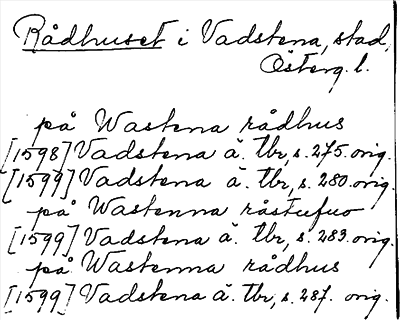 Rådhuset i Vadstena, stad,
Österg. l.
på Wastena rådhus
[1598] Vadstena ä. tbr, s. 275. orig.
[1599] Vadstena ä. tbr, s. 280. orig.
på Wastenna råstufuo
[1599] Vadstena ä. tbr, s. 283. orig.
på Wastenna rådhus
[1599] Vadstena ä. tbr, s. 287. orig.